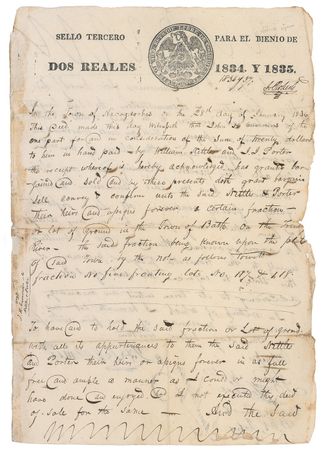 SELLO TERCERO
PARA EL BIENIO DE
DOS REALES
1834. Y 1835.
In the Town of Nacogdoches on the 28th day of January 183
This deed made this day between John of the
one part and in consideration of the Sum of twenty dollars
to him in hand paid by William Nettle and J. S. Porter
the receipt whereof is hereby acknowledged has granted bar
gained and Sold and by these presents doth grant bargain
Sell convey & confirm unto the Said Nettle & Porter
their heirs and assigns forever a certain fraction
or lot of ground in the Town of Bath on the
the Said fraction being known upon the plot
of Said town by the no. as follows
fraction No. five lots No. 187 & 188
To have and to hold the Said fraction or Lot of ground
with all its appurtenances to them the Said Nettle
and Porter their heirs or assigns forever in as full
free and ample a manner as I could or might
have done and enjoyed if I not executed this deed
of Sale for the Same — And the Said